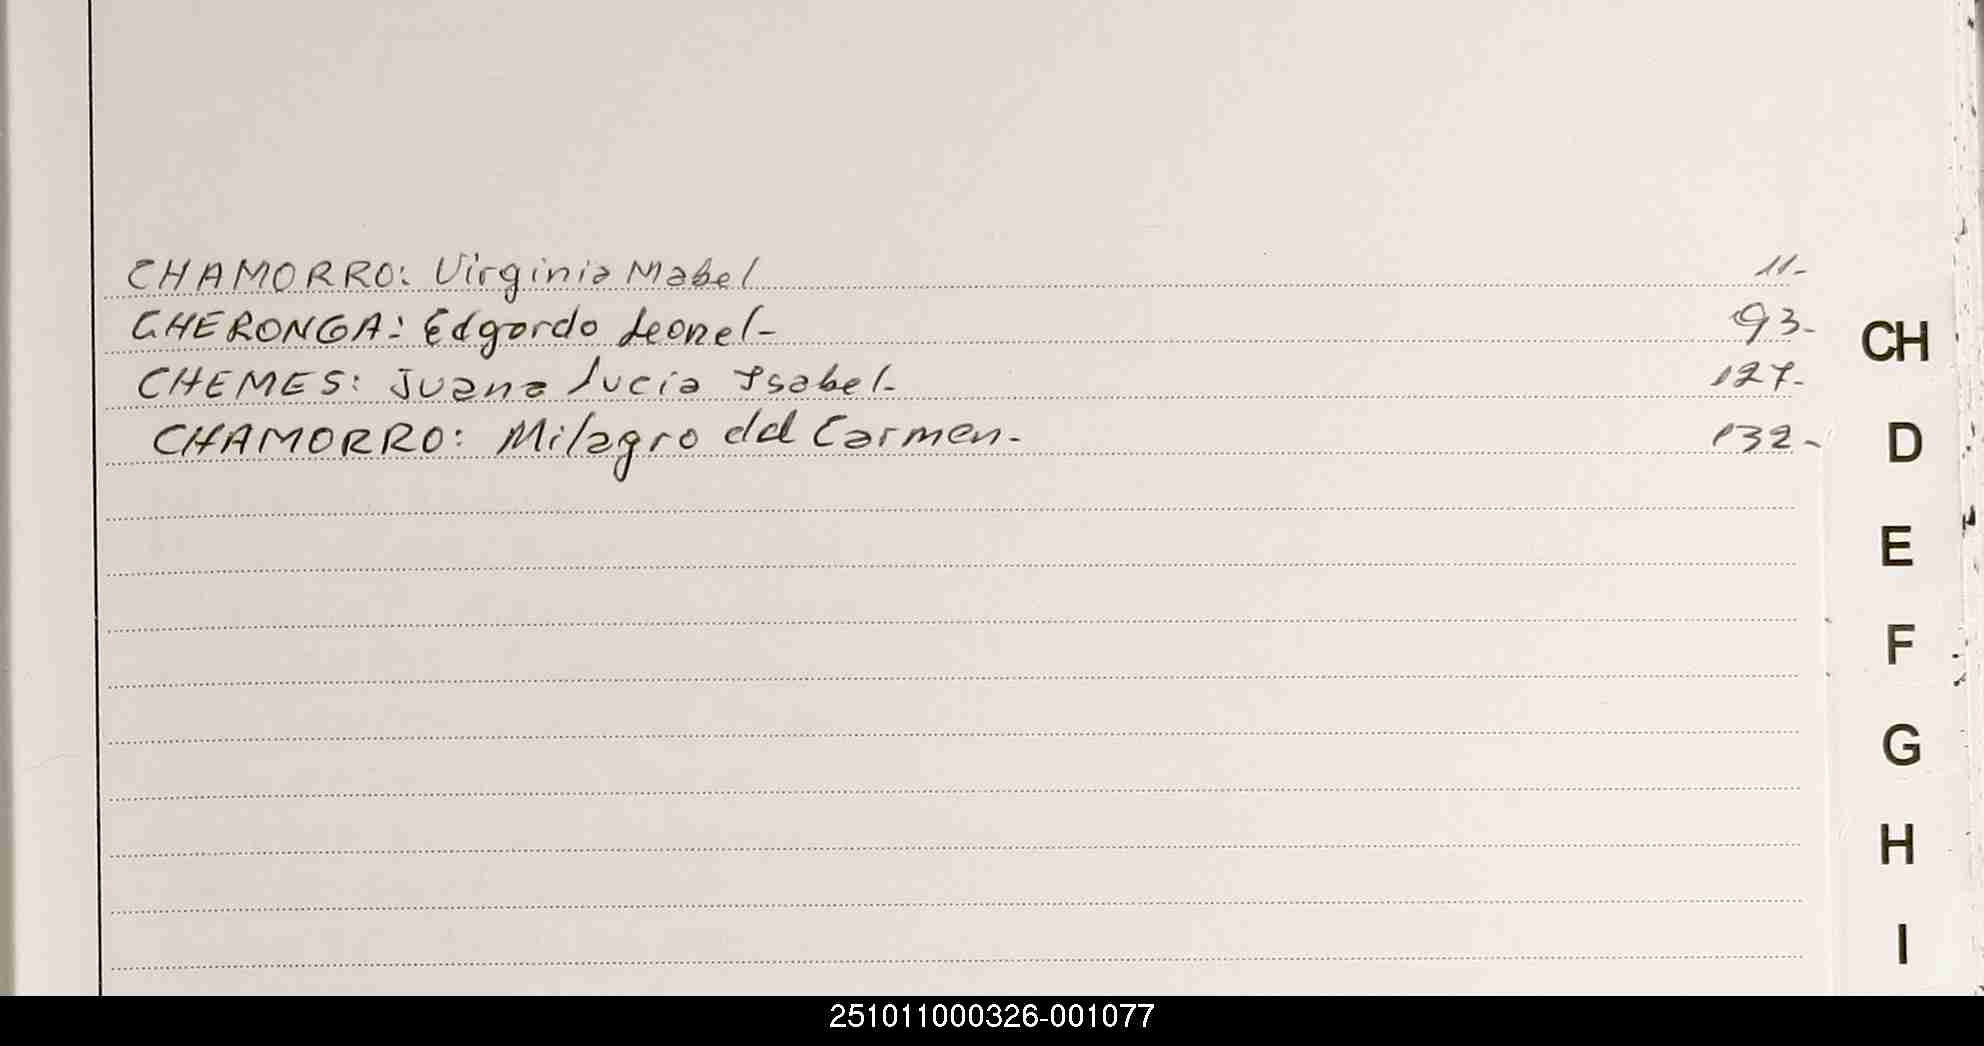 CHAMORRO: Virginia Mabel 11-
CHERONGA: Edgardo Leonel- 93-
CH
CHEMES: Juana Lucia Isabel- 127-
CHAMORRO: Milagro del Carmen- 132-
D
E
F
G
H
I
251011000326-001077